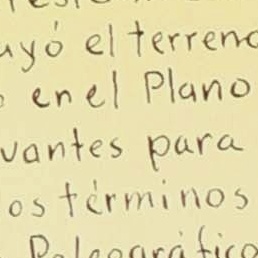 uyó el terreno
en el Plano
vantes para
os términos
Paleográfico